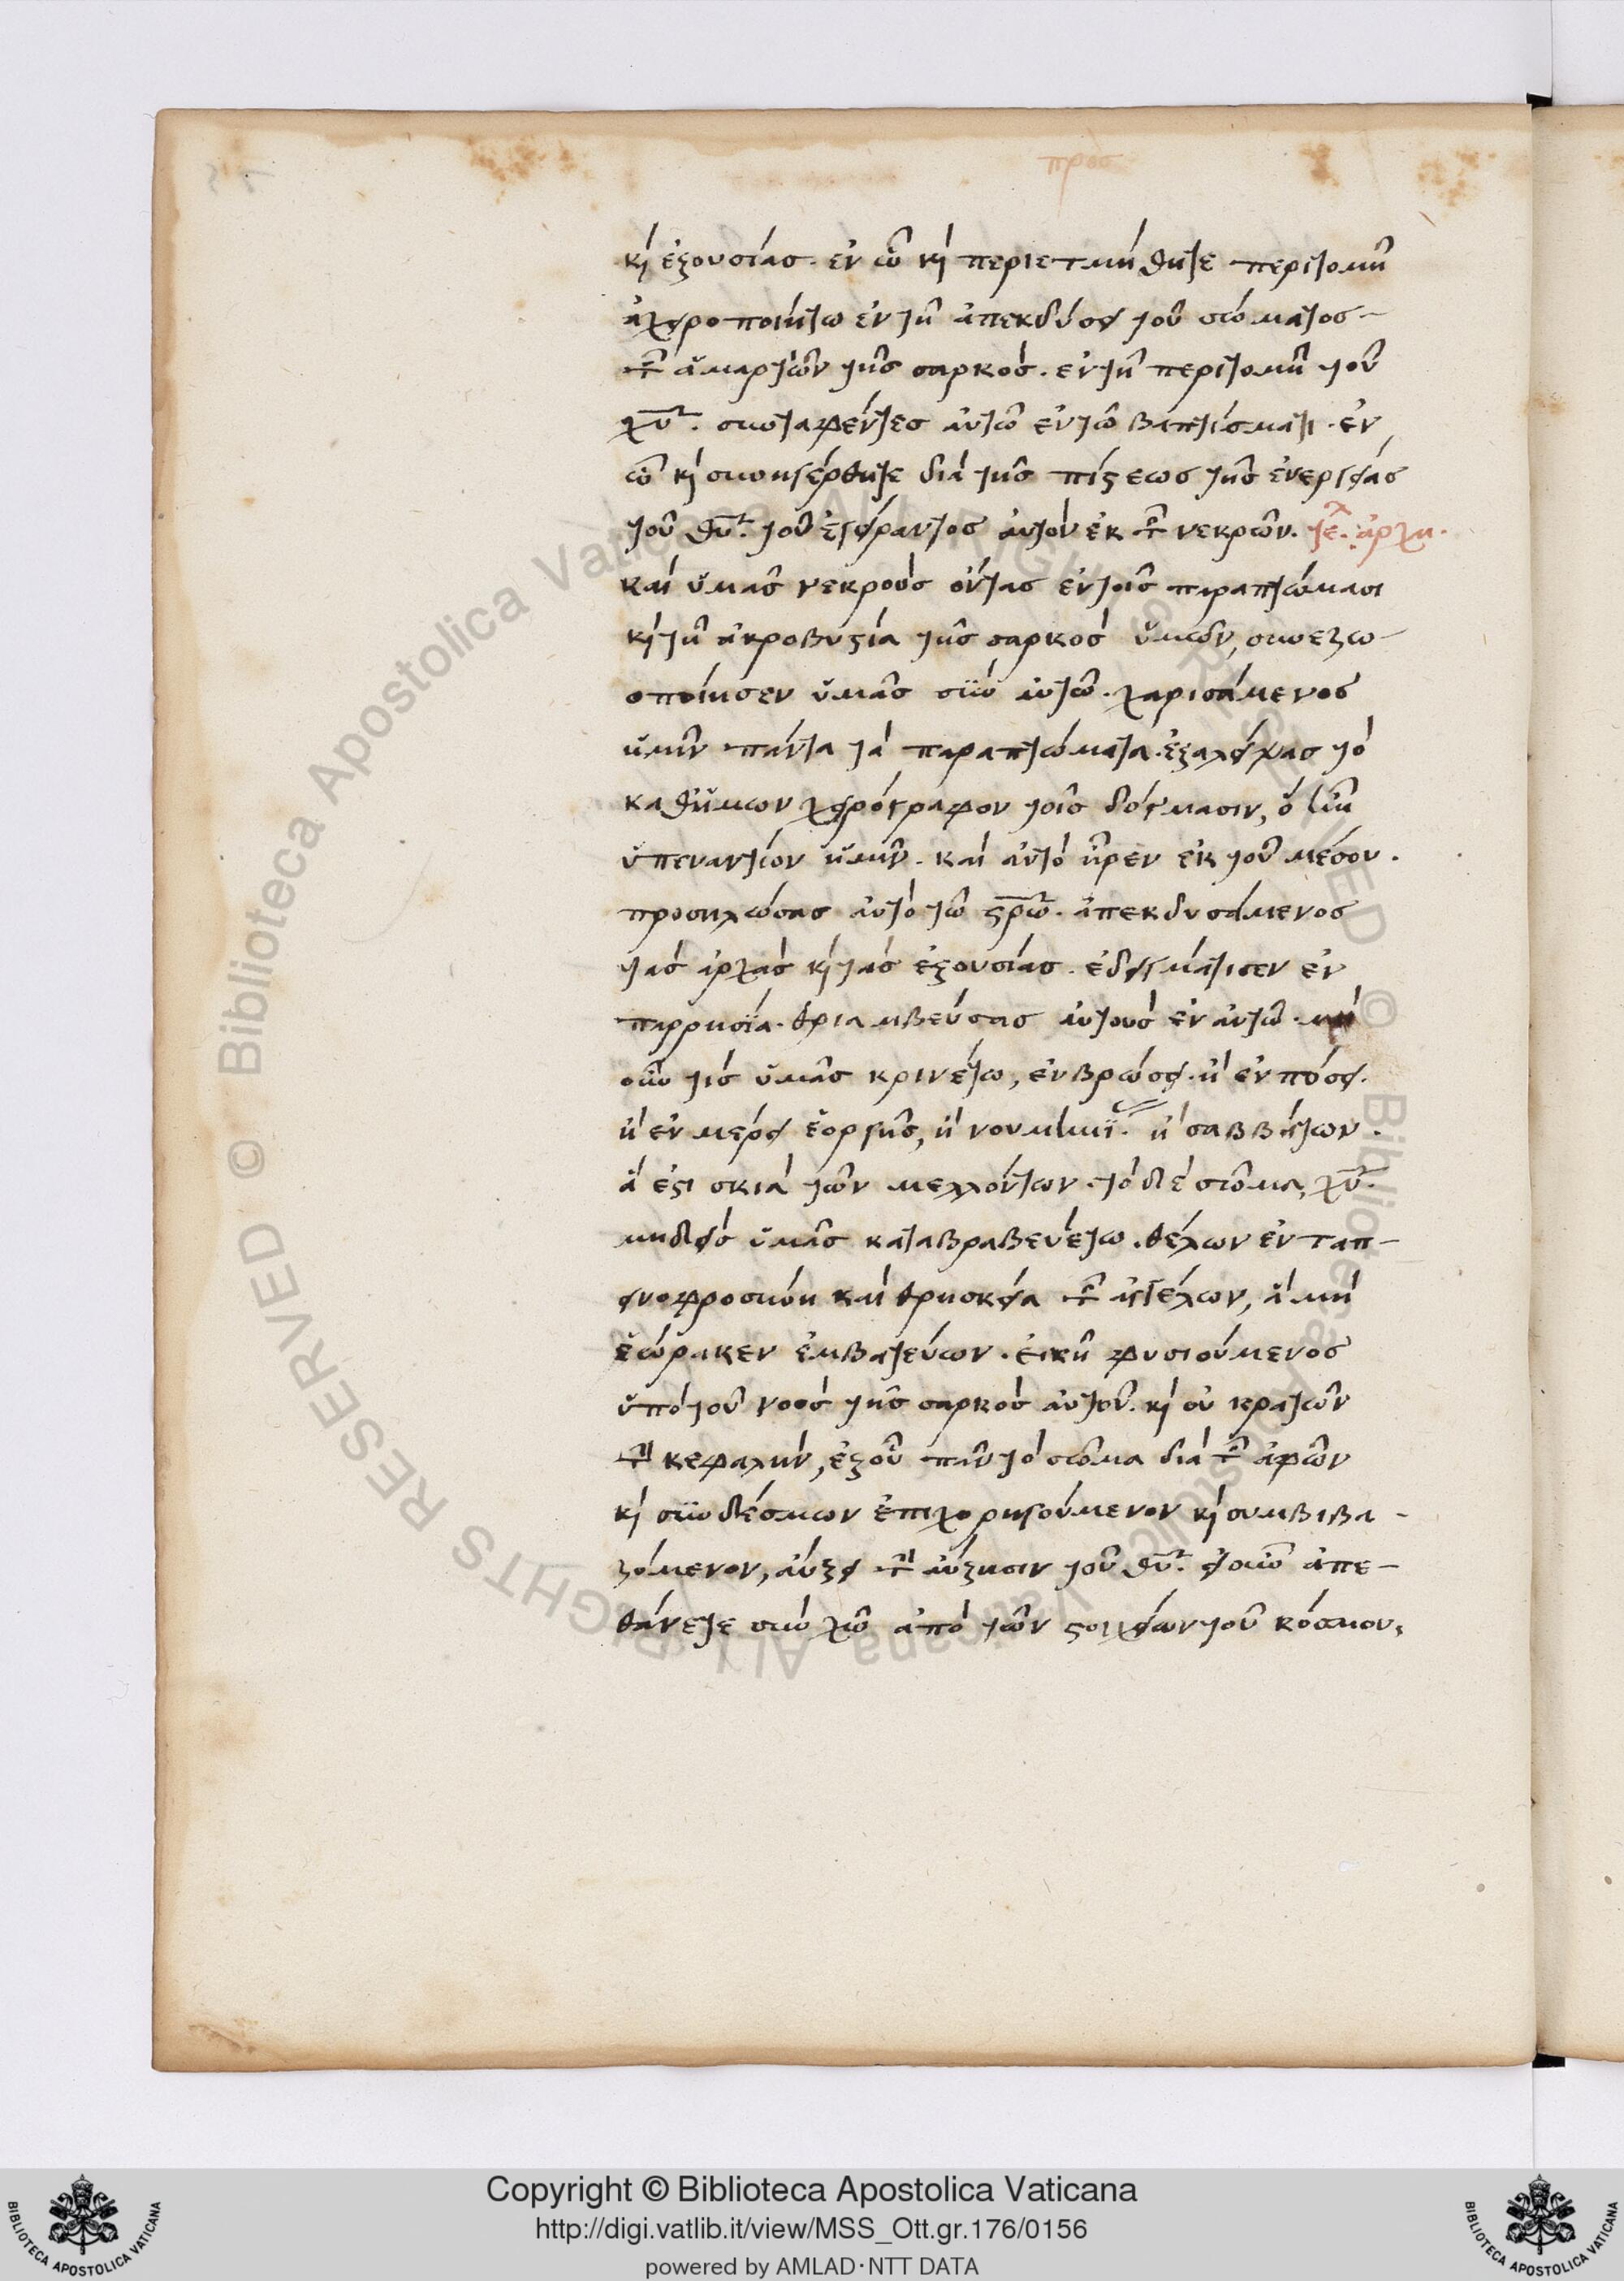 προσ
κὶ ἐξουσίας· ἐν ᾧ κὶ περιετμήθητε περιτομῆ
ἀχειροποιήτω ἐν τῆ ἀπεκδύσει τοῦ σώματος
τῶν ἁμαρτιῶν τῆς σαρκός· ἐν τῆ περιτομῆ τοῦ
χυ̅· συνταφέντες αὐτῶ ἐν τῶ βαπτίσματι· ἐν
ᾧ κὶ συνηγέρθητε διὰ τῆς πίστεως τῆς ἐνεργείας
τοῦ θυ̅· τοῦ ἐγείραντος αὐτὸν ἐκ τῶν νεκρῶν. τε̅· ἀρχη·
καὶ ὑμᾶς νεκροὺς ὄντας ἐν τοῖς παραπτώμασι
κὶ τῆ ἀκροβυστία τῆς σαρκὸς ὑμῶν, συνεζω-
οποίησεν ὑμᾶς σὺν αὐτῶ· χαρισάμενος
ἡμῖν πάντα τὰ παραπτώματα· ἐξαλείψας τὸ
καθ' ἡμῶν χειρόγραφον τοῖς δόγμασιν, ὃ ἦν
ὑπεναντίον ἡμῖν· καὶ αὐτὸ ἦρεν ἐκ τοῦ μέσου·
προσηλώσας αὐτὸ τῶ στρω̅· ἀπεκδυσάμενος
τὰς ἀρχὰς κὶ τὰς ἐξουσίας· ἐδειγμάτισεν ἐν
παρρησία· θριαμβεύσας αὐτοὺς ἐν αὐτῶ· μὴ
οὖν τὶς ὑμᾶς κρινέτω, ἐν βρώσει· ἢ ἐν πόσει·
ἢ ἐν μέρει ἑορτῆς, ἢ νουμηνίας· ἢ σαββάτων·
ἅ ἐστι σκιὰ τῶν μελλόντων· τὸ δὲ σῶμα, χυ̅·
μηδεὶς ὑμᾶς καταβραβευέτω· θέλων ἐν ταπ-
εινοφροσύνη καὶ θρησκεία τῶν ἀγγέλων, ἃ μὴ
ἑώρακεν ἐμβατεύων· εἰκῆ φυσιούμενος
ὑπὸ τοῦ νοὸς τῆς σαρκὸς αὐτοῦ· κὶ οὐ κρατῶν
τὴν κεφαλὴν, ἐξ οὗ πᾶν τὸ σῶμα διὰ τῶν ἁφῶν
κὶ συνδέσμων ἐπιχορηγούμενον κὶ συμβιβα-
ζόμενον, αὔξει τὴν αὔξησιν τοῦ θυ̅· εἰ οὖν ἀπε-
θάνετε σὺν χω̅ ἀπὸ τῶν στοιχείων τοῦ κόσμου,
Copyright © Biblioteca Apostolica Vaticana
http://digi.vatlib.it/view/MSS_Ott.gr.176/0156
powered by AMLAD·NTT DATA